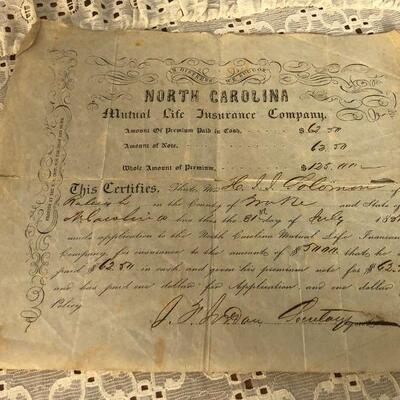 NORTH CAROLINA
Mutual Life Insurance Company.
Amount of Premium Paid in Cash, $62.50
Amount of Note, 62.50
Whole Amount of Premium, $125.00
This Certifies, That Mr H. J. Solomon of
Raleigh in the County of Wake and State of
N. Carolina has this 31st day of July 185
made application to the North Carolina Mutual Life Insurance
Company for insurance to the amount of $5000 that he
paid $62.50 in cash and given his premium note for $62.
and has paid one dollar for Application, and one dollar
Policy
Secretary